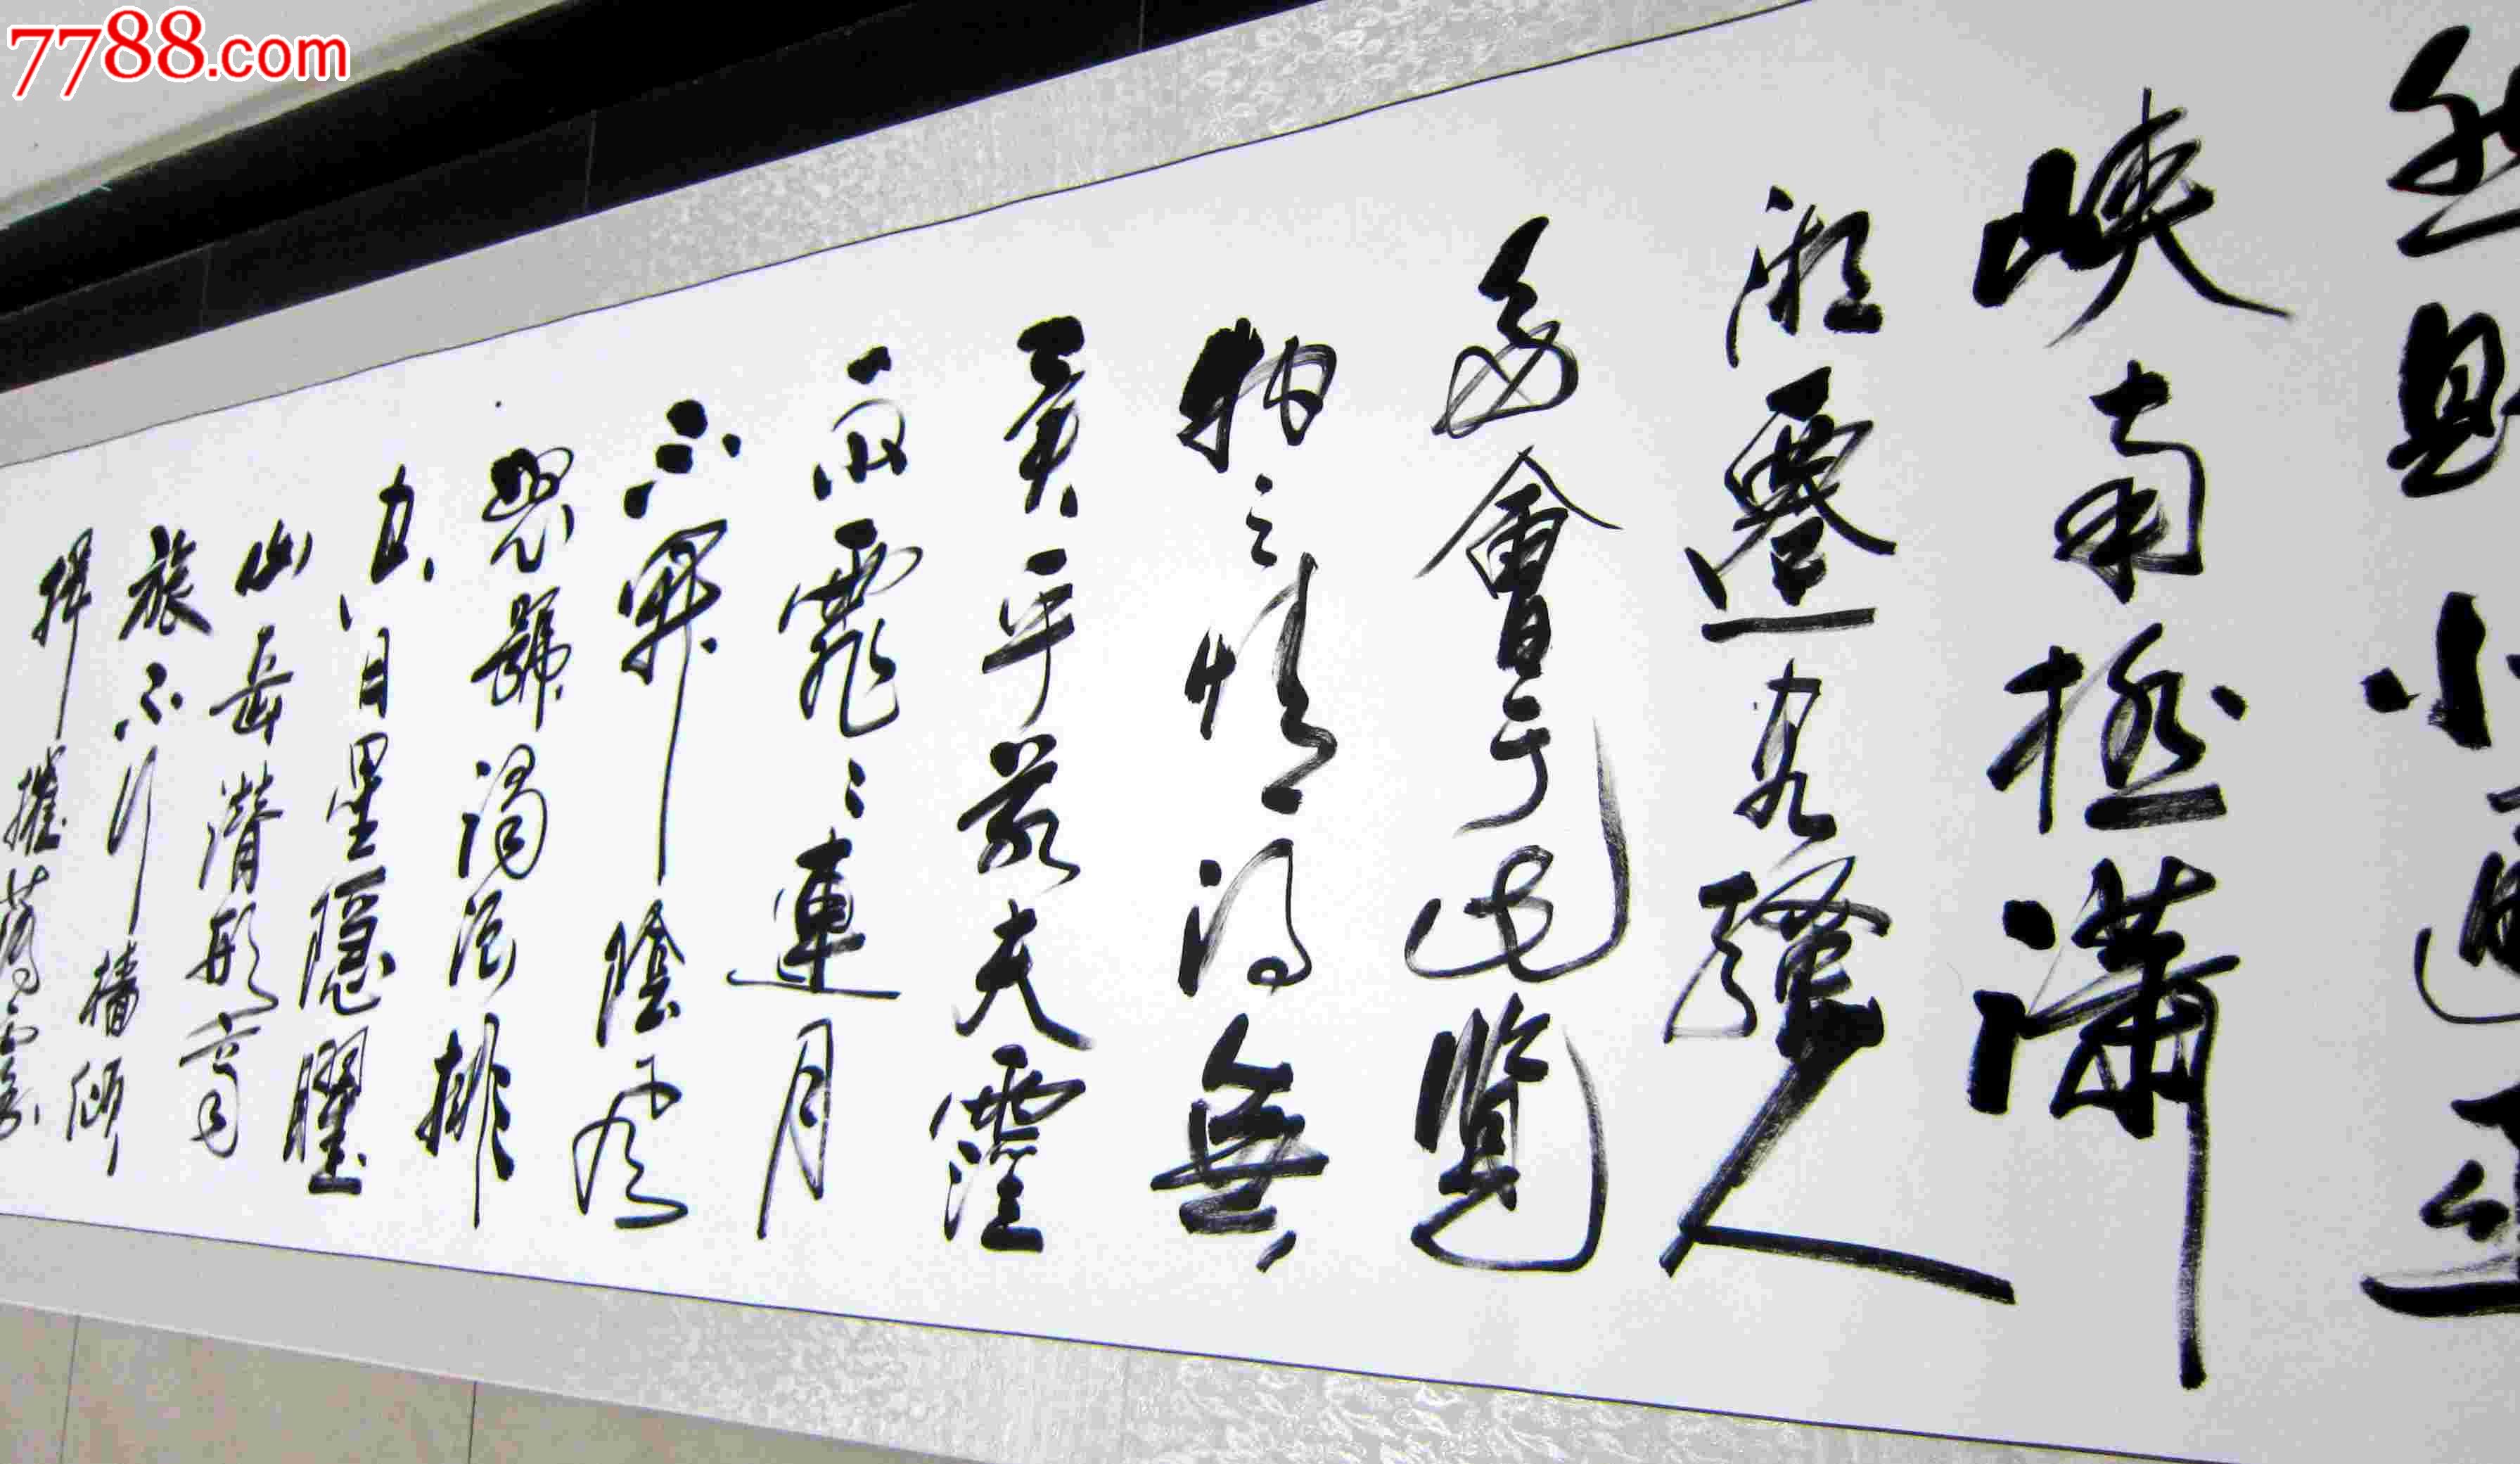 7788.com
然則北通巫
峽南極瀟
湘遷客騷人
多會于此覽
物之情得無
異乎若夫霪
雨霏〻連月
不開陰風
怒號濁浪排
空日星隱曜
山岳潛形商
旅不行檣傾
楫摧薄